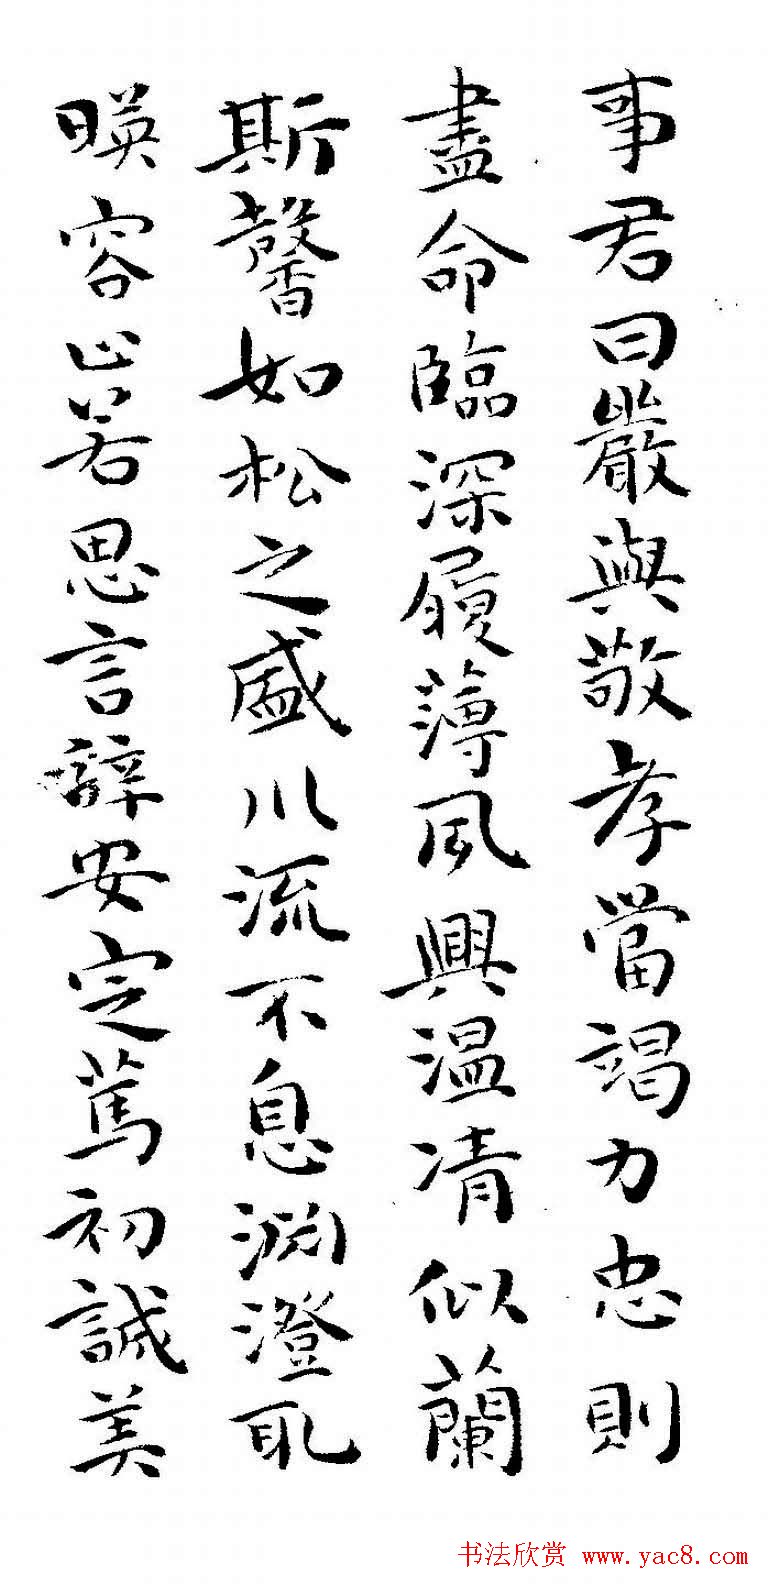 事君曰嚴與敬孝當竭力忠則
盡命臨深履薄夙興温凊似蘭
斯馨如松之盛川流不息渊澄取
暎容止若思言辭安定篤初誠美
书法欣赏 www.yac8.com